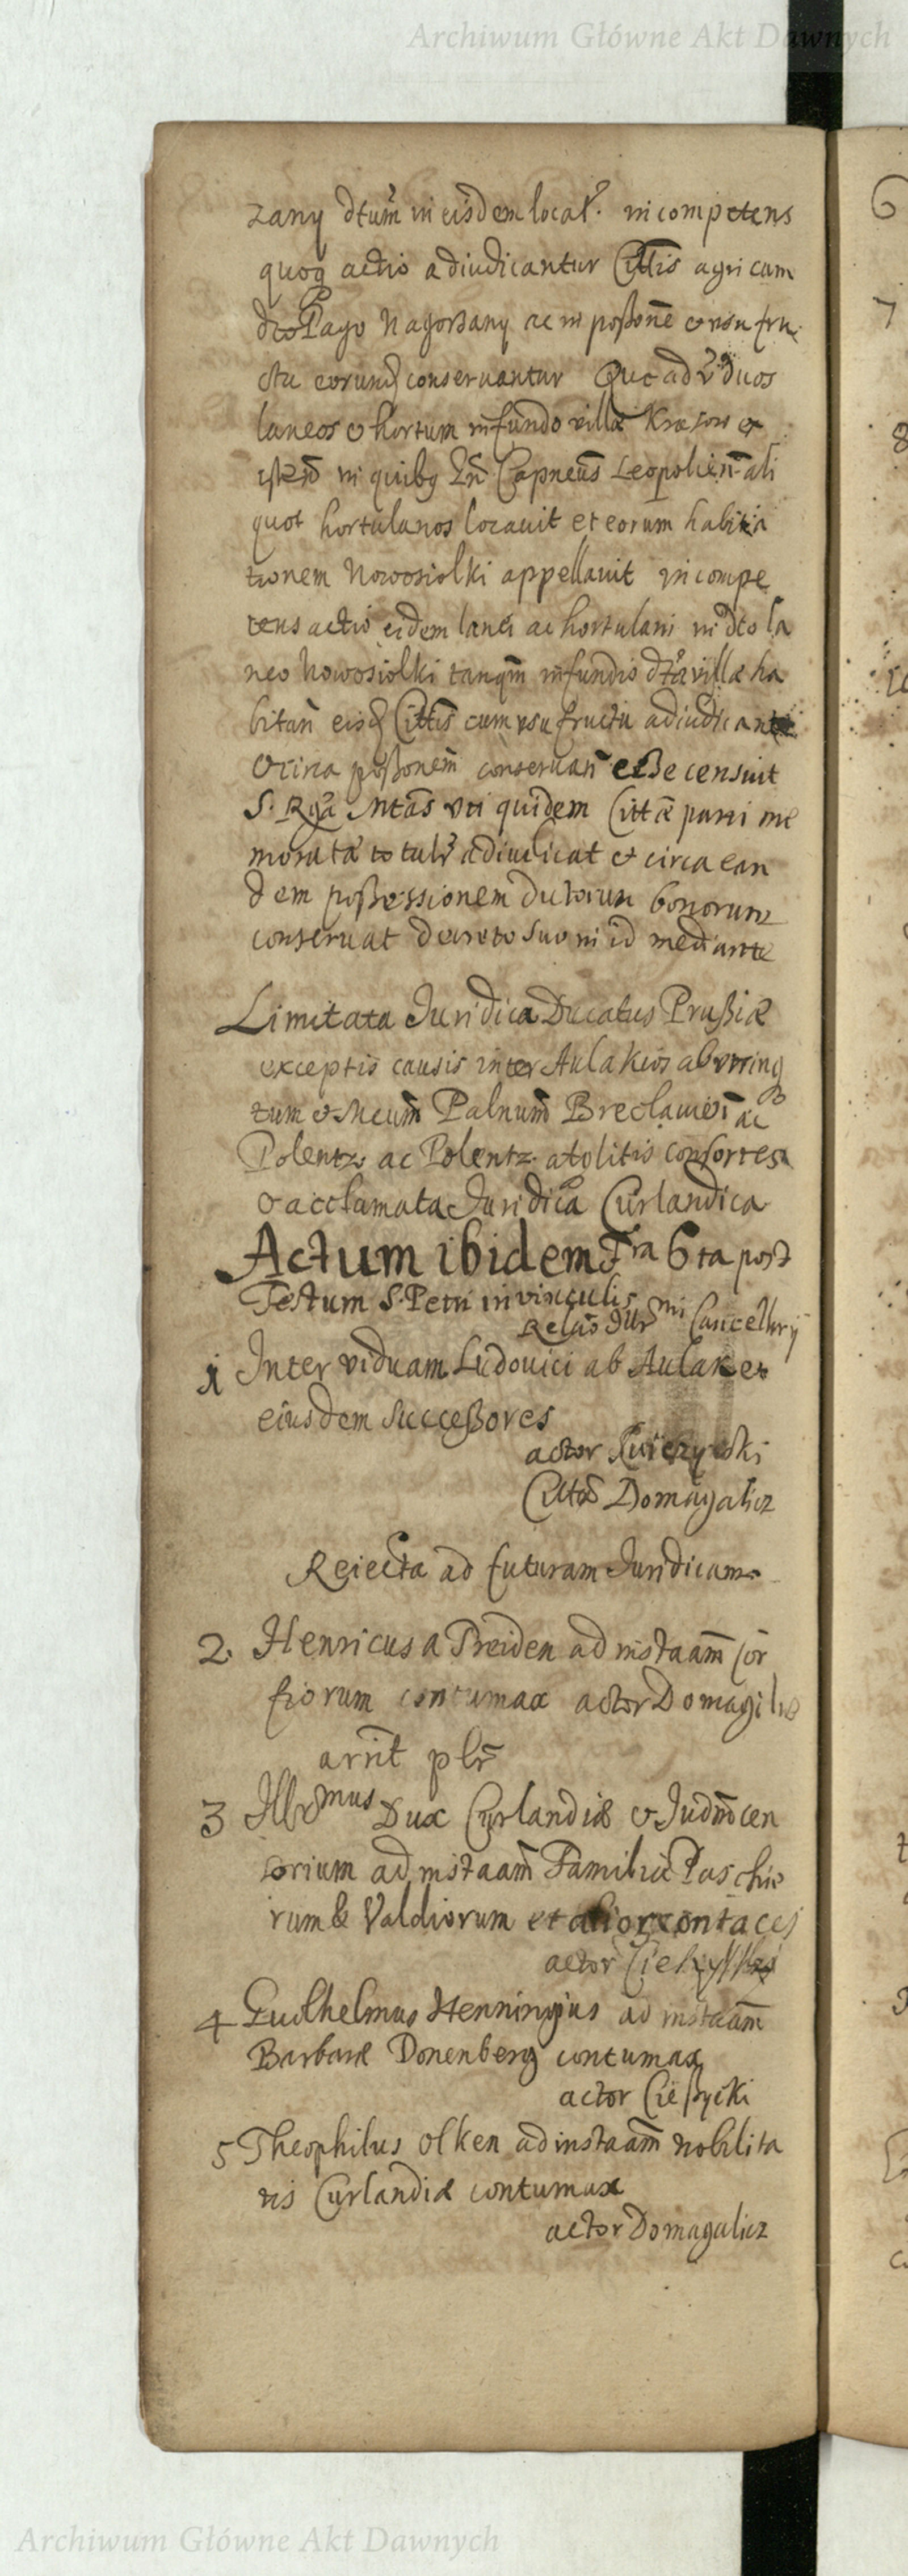 Archiwum Główne Akt Dawnych
zany dtum in eisdem local. incompetens
quoq actio adiudicantur Cittis agri cum
dto Pago Nagorßany ac in poßone et usu fru
ctu eorund conservantur Que ad duos
laneos et hortum in fundo villæ Krasow
in quibq Capneus Leopolien ali
quot hortulanos locavit et eorum habita
tionem Nowosiolki appellavit incompe
tens actio eidem lanei ac hortulani in dto la
neo Nowosiolki tanqm in fundis villæ ha
bitan eisd Cittis cum usu fructu adiudicant
et circa poßonem conservan eße censuit
S. Rga Mtas uti quidem Cittæ parti me
moratæ adiudicat et circa ean
dem poßessionem dictorum bonorum
conservat decreto suo in id mediante
Limitata Juridica Ducatus Prußiæ
exceptis causis inter Aulakios ab
tum et Palnum ac
Polentz ac Polentz consortes
et acclamata Juridica Curlandica
Actum ibidem Fra 6ta post
Festum S. Petri in vinculis
Relao Illr mi Cancellrij
1 Inter viduam Ludovici ab Aulak et
eiusdem Succeßores
actor
Cittus Domagalicz
Reiecta ad futuram Juridicam
2. Henricus a Preiden ad instaam
fiorum contumax actor Domagalic
arrit plr
3 Illr mus Dux Curlandiæ et
sorium ad instaam Familiæ Paschio
rum & Valdiorum et alior contaces
actor
4 Guilhelmus Henningius ad instaam
Barbaræ Donenberg contumax
actor Cießycki
5 Theophilus Olken ad instaam nobilita
tis Curlandiæ contumax
actor Domagalicz
Archiwum Główne Akt Dawnych